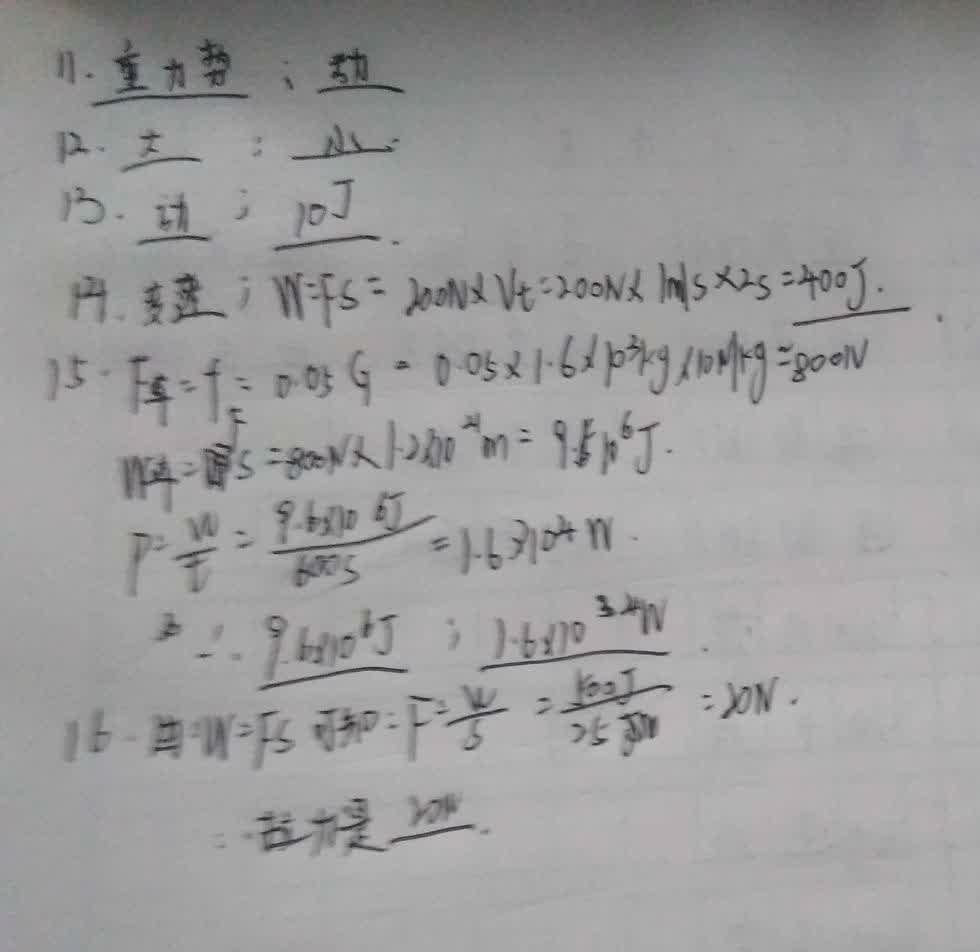 11. 重力势 ; 动
12. 大 ; 小.
13. 动 ; 10J.
14. 变 ; W=FS= 200N×Vt=200N×1m/s×2s=400J.
15. F牵=f=0.05G=0.05×1.6×10³kg×10N/kg=800N
W牵=FS=800N×1.2×10⁴m=9.6×10⁶J.
P=W/t=9.6×10⁶J/600s=1.6×10⁴W.
∴ 9.6×10⁶J ; 1.6×10⁴W.
16. 由:W=FS 可知:F=W/S=100J/=20N.
∴拉力是 20N.